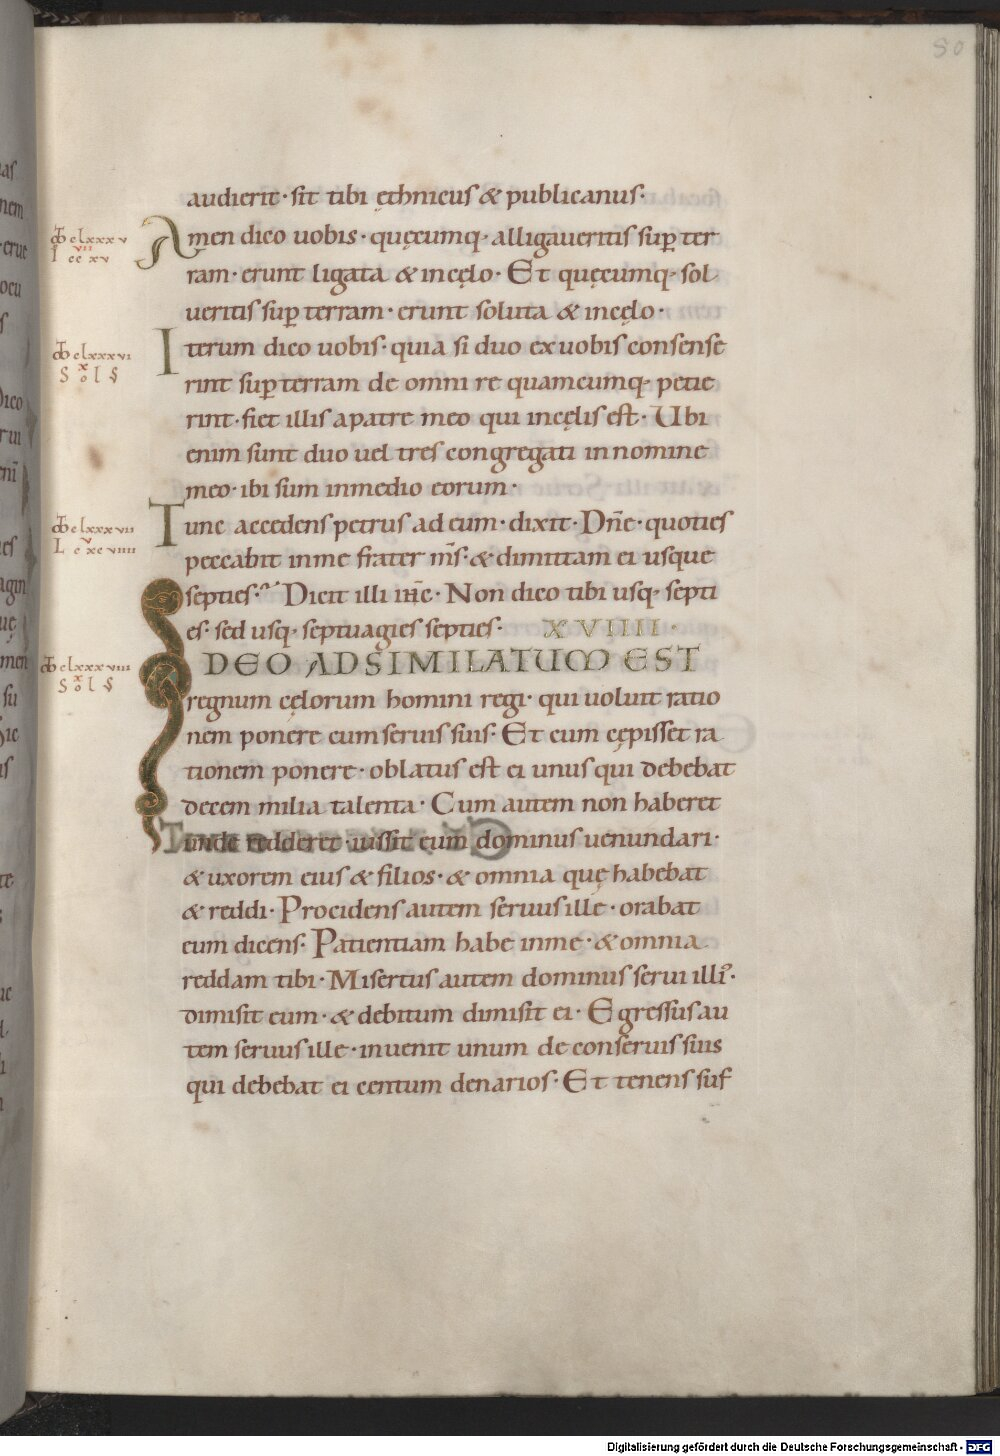 80
audierit · sit tibi ęthnicus & publicanus ·
Amen dico uobis · quęcumq· alligaueritis sup̱ ter
ram · erunt ligata & incęlo · Et quęcumq· sol
ueritis sup̱ terram · erunt soluta & incęlo ·
Iterum dico uobis · quia si duo exuobis consense
rint sup̱ terram de omni re quamcumq· petie
rint · fiet illis apatre meo qui incęlis est · Ubi
enim sunt duo uel tres congregati innomine
meo · ibi sum inmedio eorum ·
Tunc accedens petrus ad eum · dixit · Dñe · quoties
peccabit inme frater m̄s · & dimittam ei usque
septies · Dicit illi ih̄c · Non dico tibi usq· septi
es · sed usq· septuagies septies · XVIIII ·
IDEO ADSIMILATUM EST
regnum cęlorum homini regi · qui uoluit ratio
nem ponere cum seruis suis · Et cum cępisset ra
tionem ponere · oblatus est ei unus qui debebat
decem milia talenta · Cum autem non haberet
unde redderet · iussit eum dominus uenundari ·
& uxorem eius & filios · & omnia quę habebat
& reddi · Procidens autem seruus ille · orabat
eum dicens · Patientiam habe inme · & omnia
reddam tibi · Misertus autem dominus serui illi᾽ ·
dimisit eum · & debitum dimisit ei · Egressus au
tem seruus ille · inuenit unum de conseruis suis
qui debebat ei centum denarios · Et tenens suf
clxxxv
vii
cc xv
clxxxvi
x
S o l S
clxxxvii
v
L c xc viiii
clxxxviii
x
S o l S
Digitalisierung gefördert durch die Deutsche Forschungsgemeinschaft - DFG